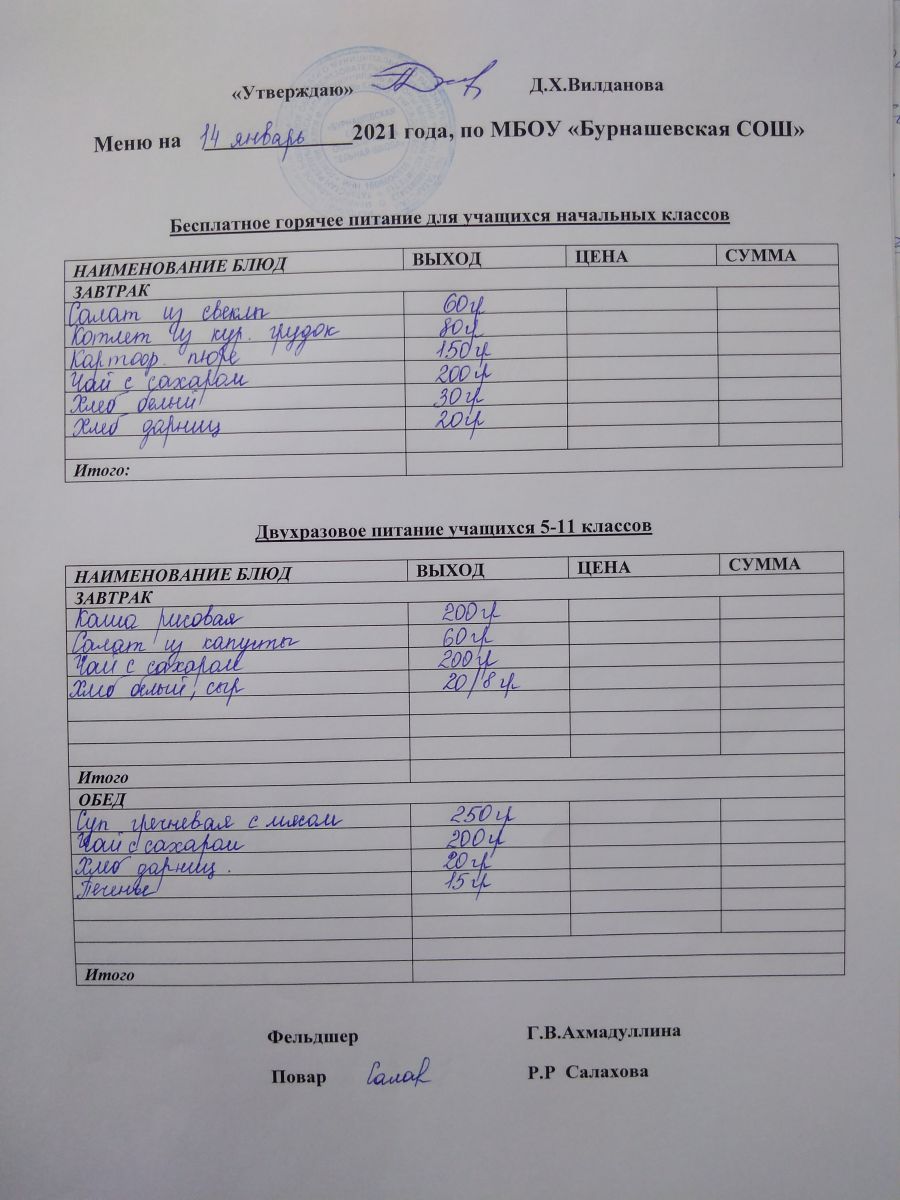 «Утверждаю» Д.Х.Вилданова
Меню на 14 январь 2021 года, по МБОУ «Бурнашевская СОШ»
Бесплатное горячее питание для учащихся начальных классов
НАИМЕНОВАНИЕ БЛЮД ВЫХОД ЦЕНА СУММА
ЗАВТРАК
Салат из свеклы 60гр
Котлет из кур. грудок 80гр
Картоф. пюре 150гр
Чай с сахаром 200гр
Хлеб белый 30гр
Хлеб дарниц 20гр
Итого:
Двухразовое питание учащихся 5-11 классов
НАИМЕНОВАНИЕ БЛЮД ВЫХОД ЦЕНА СУММА
ЗАВТРАК
Каша рисовая 200гр
Салат из капусты 60гр
Чай с сахаром 200гр
Хлеб белый, сыр 20/8гр
Итого
ОБЕД
Суп гречневая с мясом 250гр
Чай с сахаром 200гр
Хлеб дарниц. 20гр
Печенье 15гр
Итого
Фельдшер Г.В.Ахмадуллина
Повар Салах Р.Р Салахова